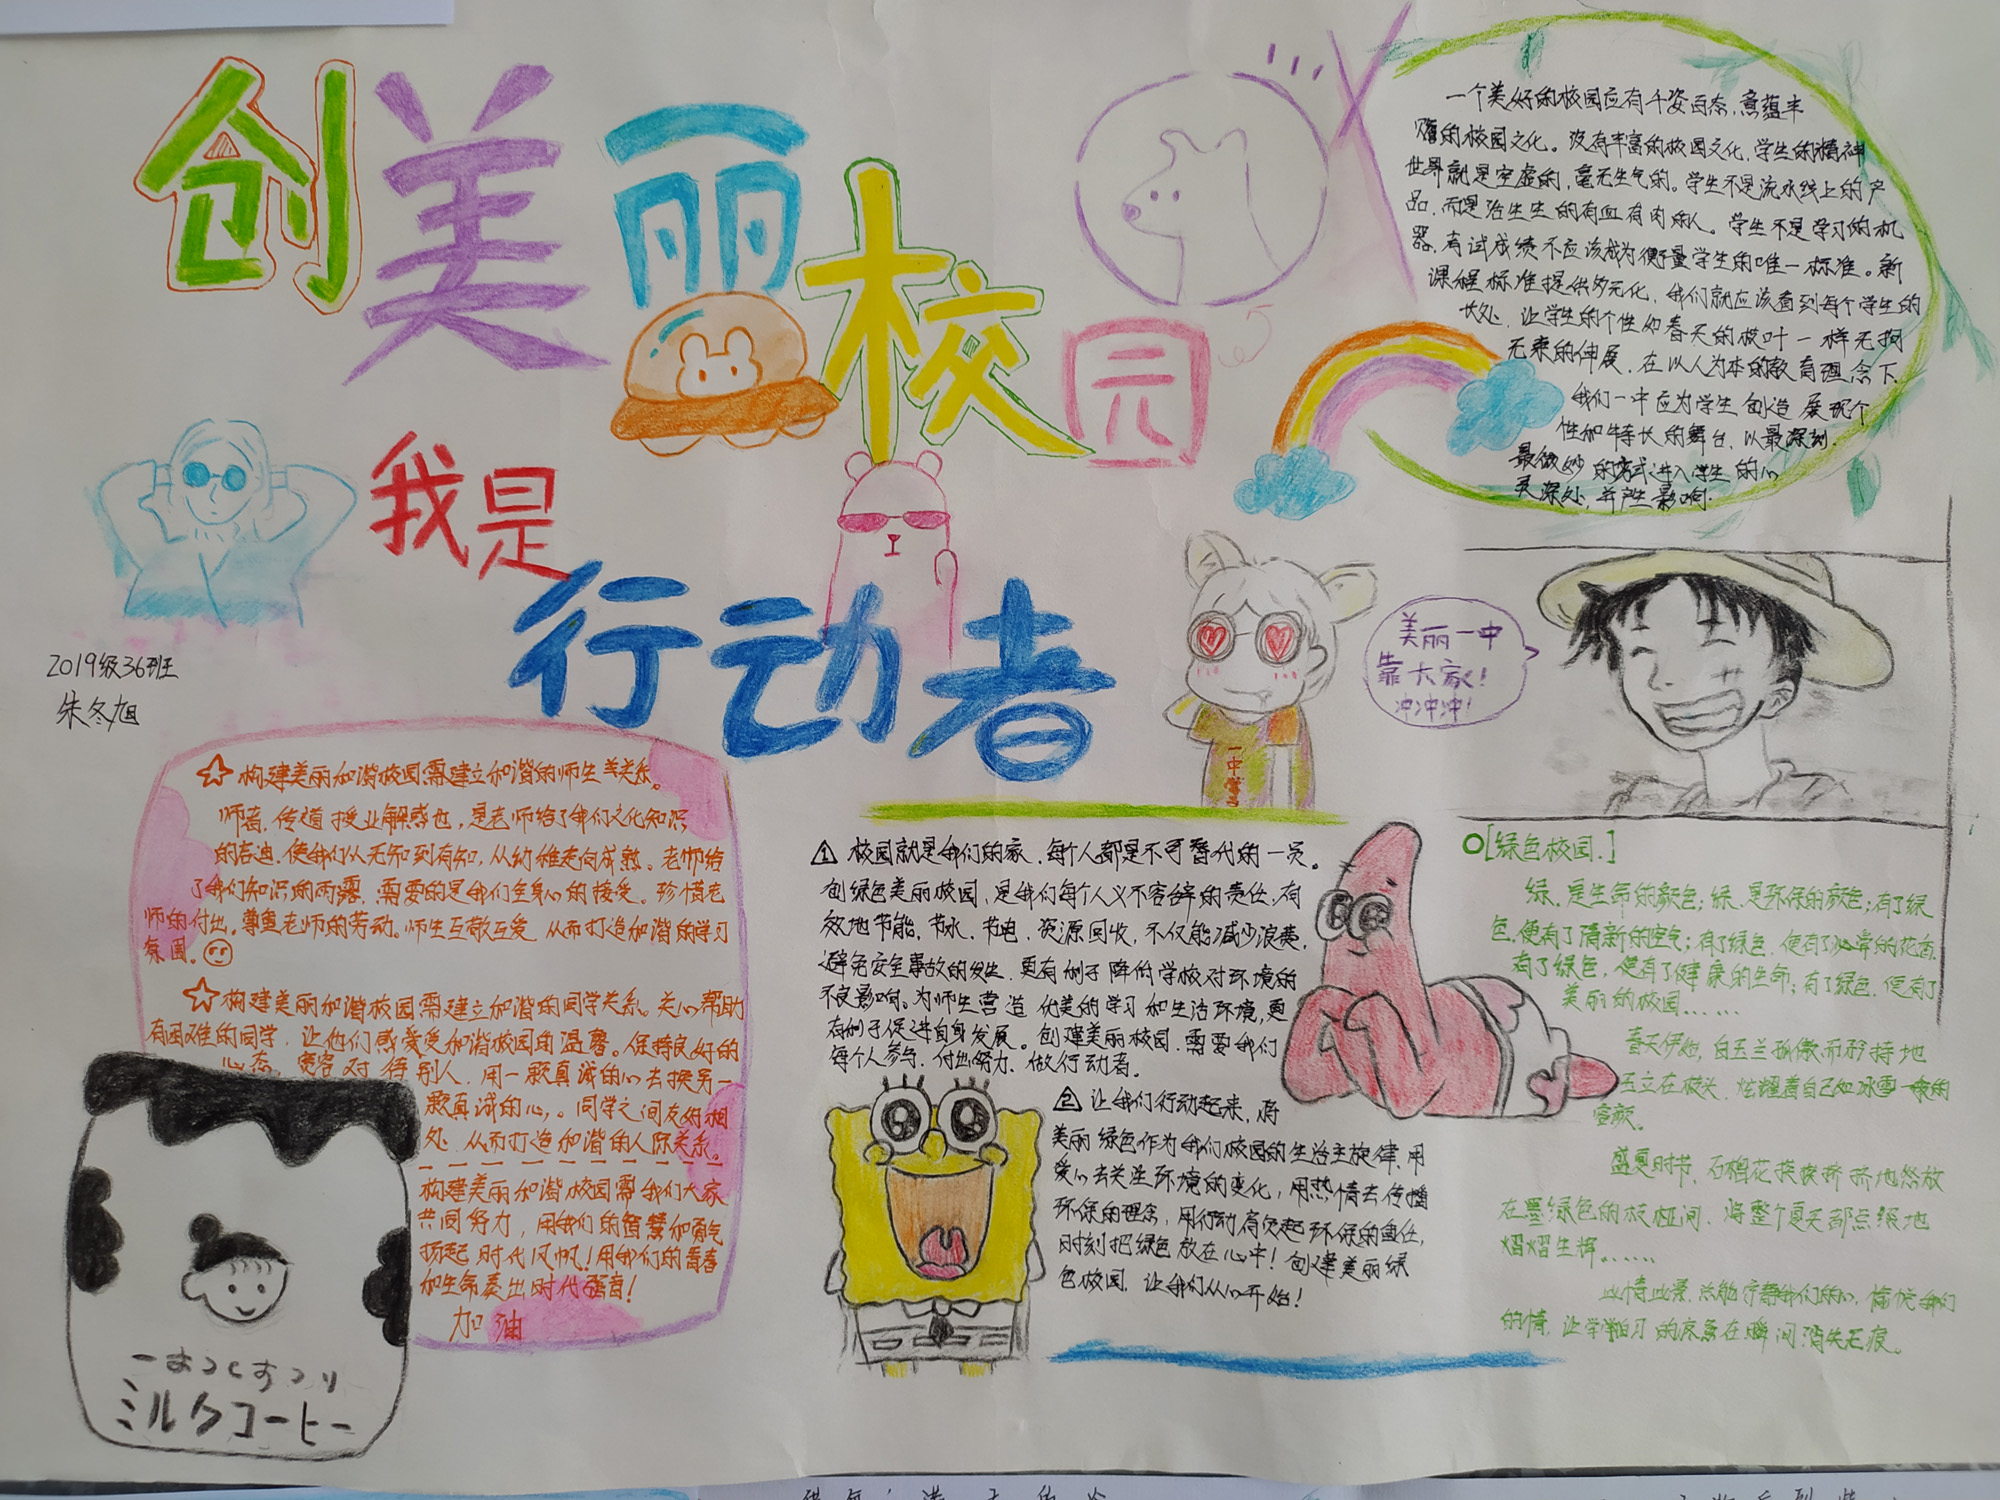 创美丽校园
我是
行动者
2019级36班
朱冬旭
一个美好的校园应有千姿百态,意蕴丰
的校园文化。没有丰富的校园文化,学生的精神
世界就是空虚的,毫无生气的。学生不是流水线上的产
品,而是活生生的有血有肉的人。学生不是学习的机
器,考试成绩不应该成为衡量学生的唯一标准。新
课程标准提供多元化,我们就应该看到每个学生的
长处,让学生的个性如春天的枝叶一样无拘
无束的伸展,在以人为本的教育理念下
我们一中应为学生创造展现个
性和特长的舞台,以最深刻
最微妙的方式进入学生的心
灵深处,并产生影响.
美丽一中
靠大家!
冲冲冲!
一中
☆构建美丽和谐校园需建立和谐的师生关系。
师者,传道授业解惑也,是老师给了我们文化知识
的启迪,使我们从无知到有知,从幼稚走向成熟。老师给
了我们知识的雨露,需要的是我们全身心的接受。珍惜老
师的付出,尊重老师的劳动。师生互敬互爱,从而打造和谐的学习
氛围。
☆构建美丽和谐校园需建立和谐的同学关系。关心帮助
有困难的同学,让他们感受爱和谐校园的温馨。保持良好的
心态,宽容对待别人,用一颗真诚的心去换另一
颗真诚的心,。同学之间友好相
处,从而打造和谐的人际关系。
构建美丽和谐校园需我们大家
共同努力,用我们的智慧和勇气
扬起时代风帆!用我们的青春
和生命奏出时代强音!
加油
一おつくすつり
ミルクコーヒー
① 校园就是我们的家,每个人都是不可替代的一员。
创绿色美丽校园,是我们每个人义不容辞的责任,有
效地节能,节水,节电,资源回收,不仅能减少浪费,
避免安全事故的发生,更有利于降低学校对环境的
不良影响。为师生营造优美的学习和生活环境,更
有利于促进自身发展。创建美丽校园,需要我们
每个人参与,付出努力,做行动者。
② 让我们行动起来,将
美丽绿色作为我们校园的生活主旋律,用
爱心去关注环境的变化,用热情去传播
环保的理念,用行动肩负起环保的重任,
时刻把绿色放在心中!创建美丽绿
色校园,让我们从心开始!
[绿色校园.]
绿,是生命的颜色;绿,是环保的颜色;有了绿
色,便有了清新的空气;有了绿色,便有了沁常的花香,
有了绿色,便有了健康的生命;有了绿色,便有了
美丽的校园……
春天伊始,白玉兰孤傲而矜持地
玉立在枝头,炫耀着自己如冰雪一般的
容颜。
盛夏时节,石榴花挨挨挤挤地怒放
在墨绿色的枝桠间,将整个夏天都点缀地
熠熠生辉……
此情此景,总能宁静我们的心,愉悦我们
的情,让学习的疲惫在瞬间消失无痕。